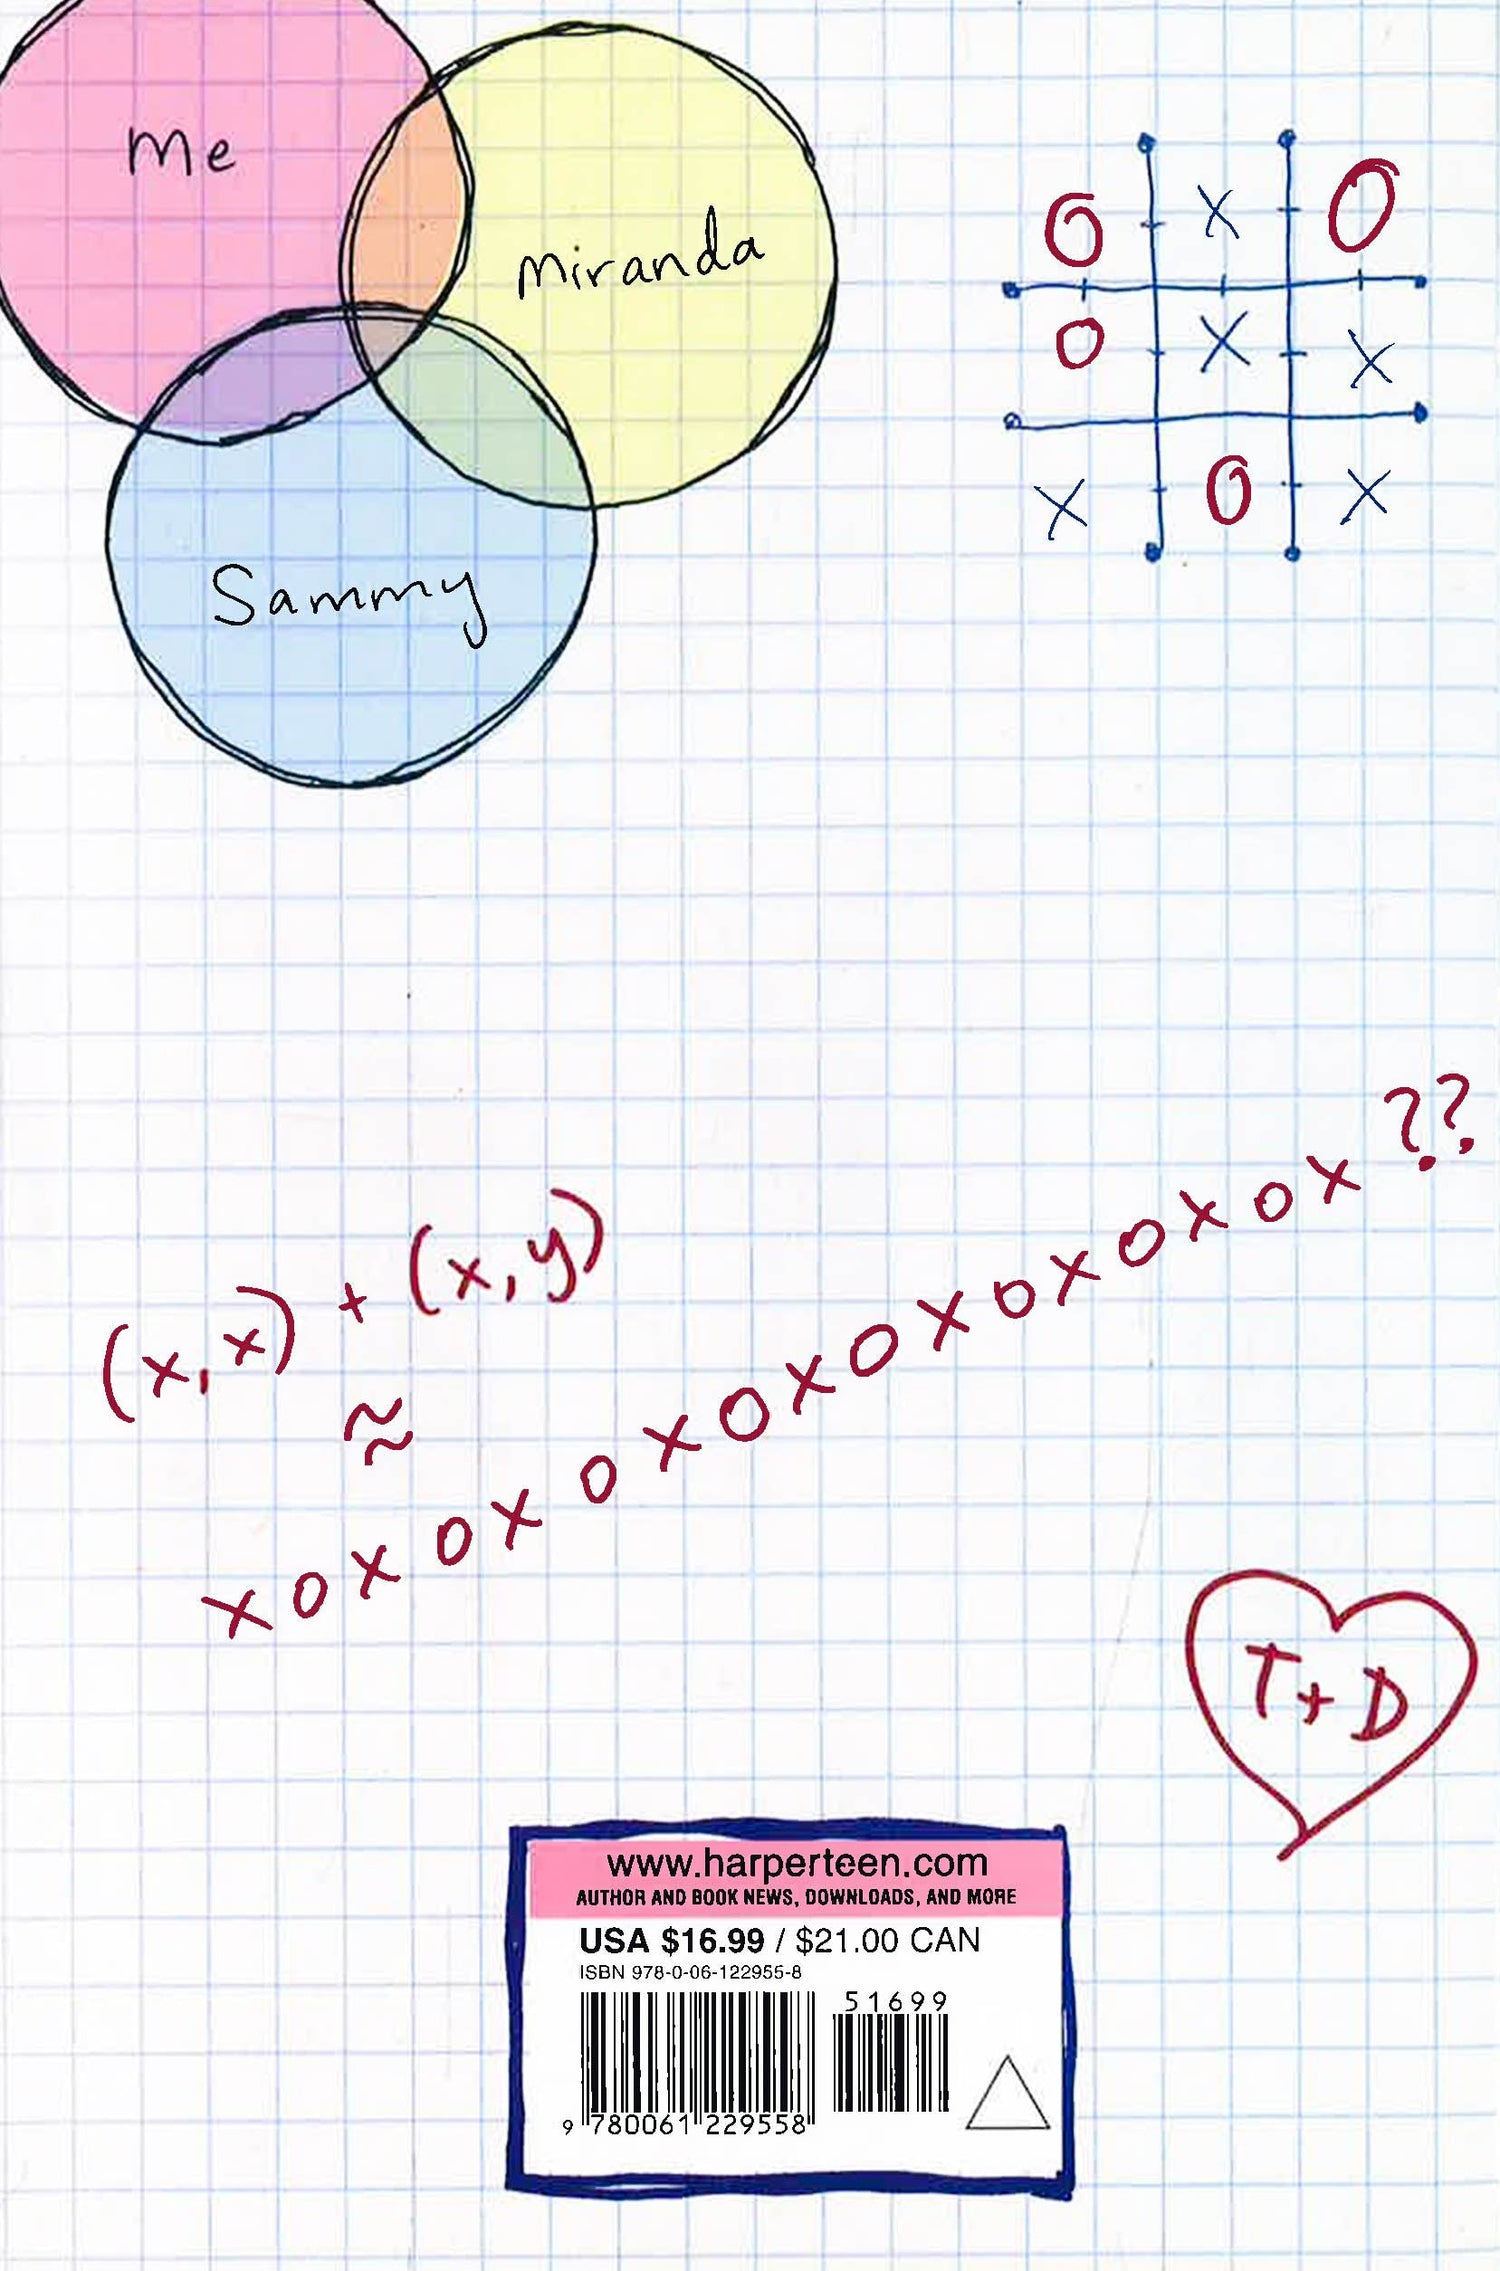 Me
Miranda
Sammy
O X O
O X X
X O X
(x, x) + (x, y)
≈
x o x o x o x o x o x o x o x o x ??
T + D
www.harperteen.com
AUTHOR AND BOOK NEWS, DOWNLOADS, AND MORE
USA $16.99 / $21.00 CAN
ISBN 978-0-06-122955-8
51699
9 780061 229558